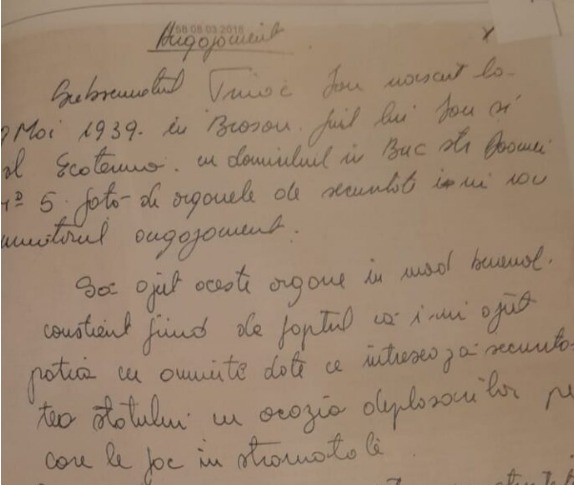 SB 08.03.2018
Angajament
Subsemnatul Ion nascut la
9 Mai 1939. in Brasov. fiul lui Ion si
al Ecaterina. cu domiciliul in Buc str Doamnei
nº 5. fată de organele de securitate imi iau
următorul angajament.
Să ajut aceste organe in mod benevol.
constient fiind de faptul că imi ajut
patria cu anumite date ce interesează securita-
tea statului cu ocazia deplasărilor pe
care le fac in strainatate